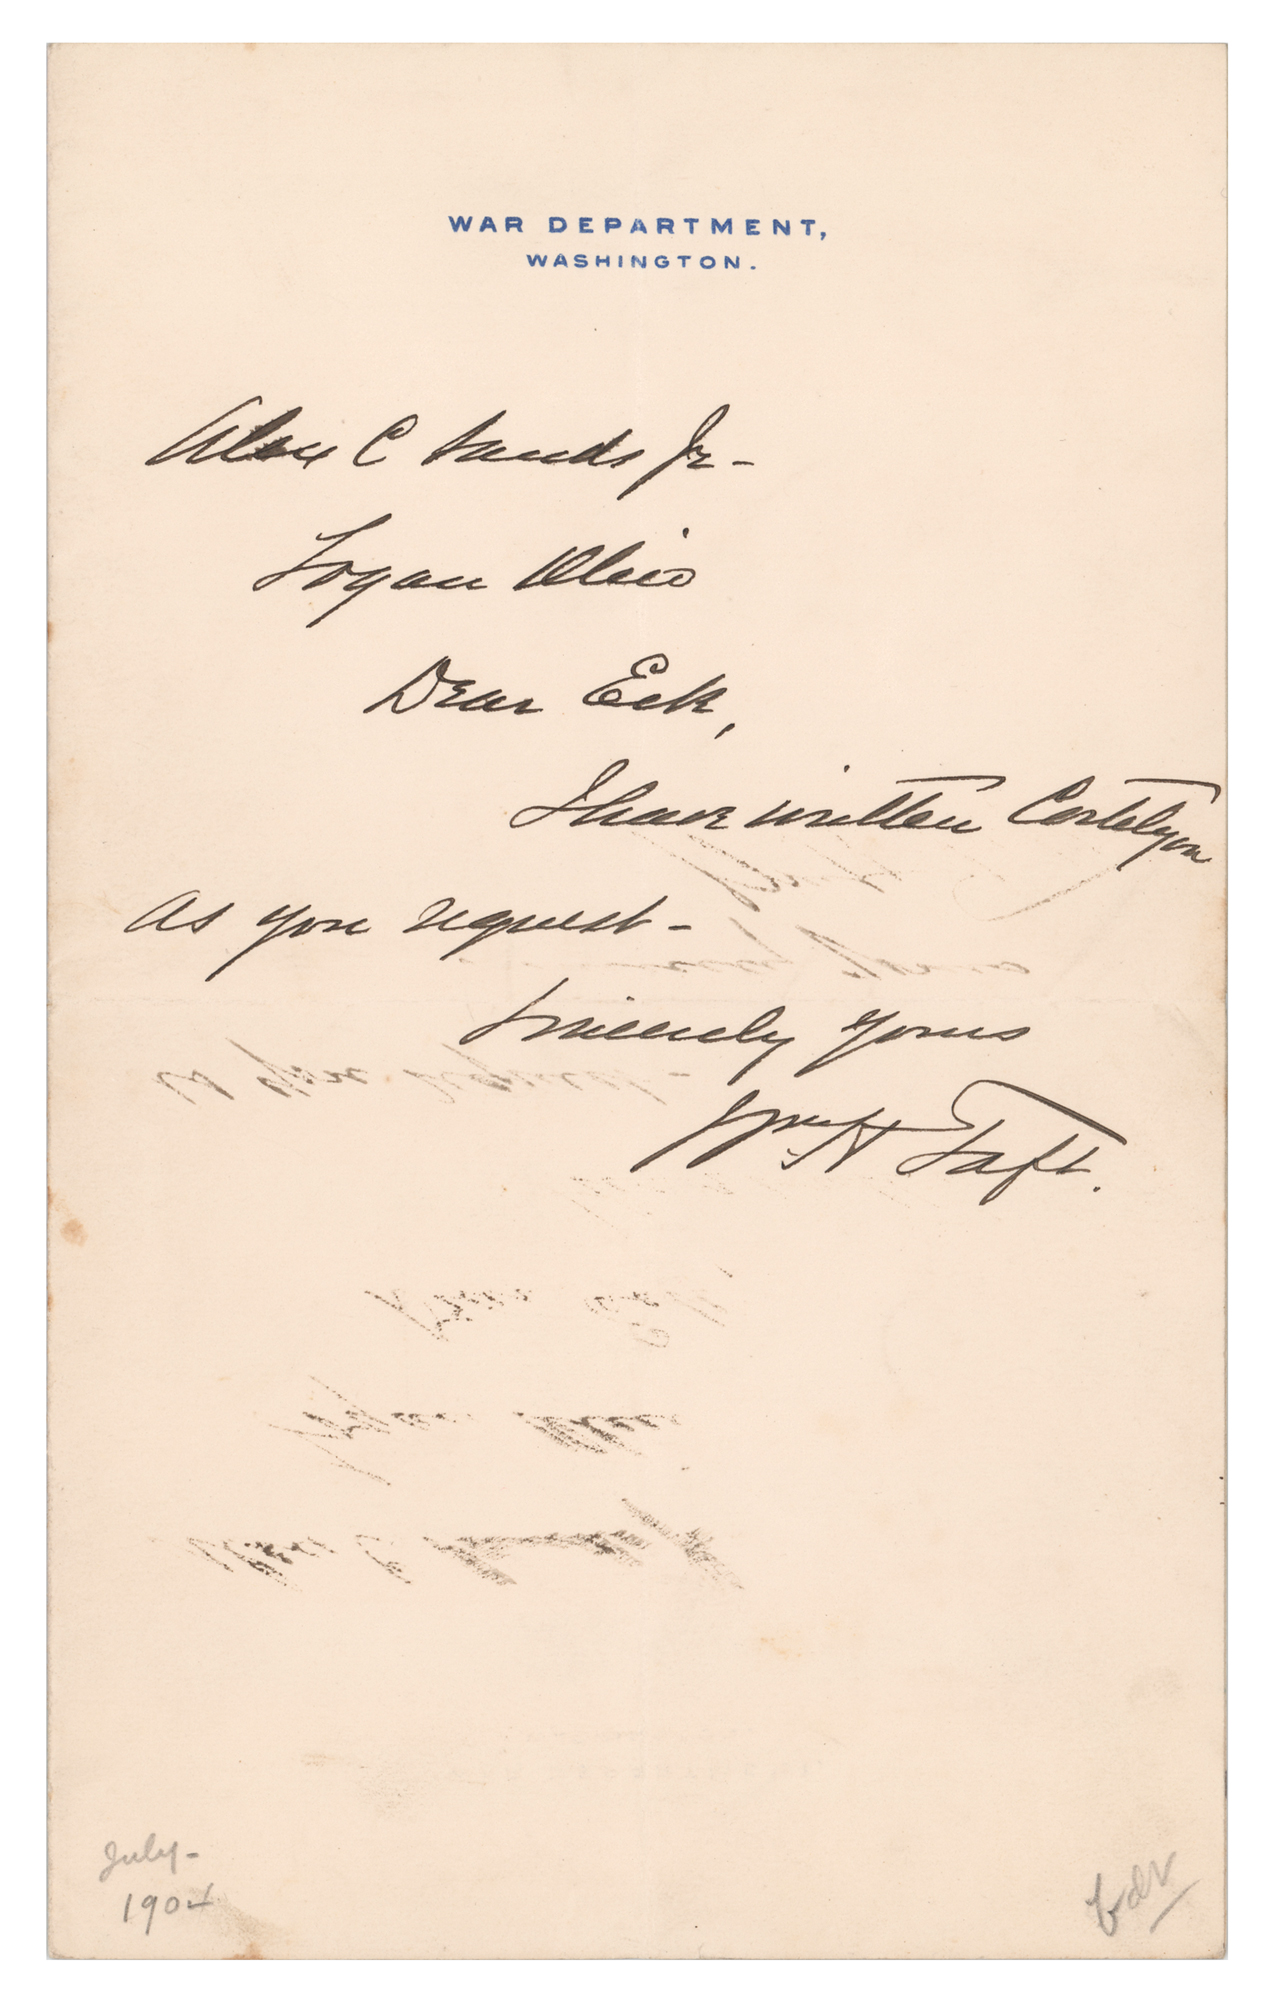 WAR DEPARTMENT,
WASHINGTON.
Alex C Sands Jr-
Logan Ohio
Dear Eck,
I have written Cortelyou
as you request-
Sincerely yours
Wm H Taft.
July-
1904